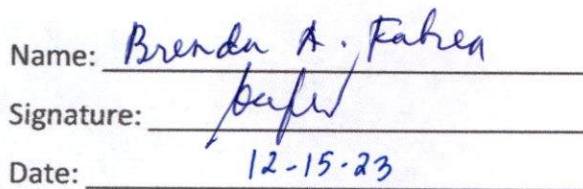 Name: Brenda A. Fabrea
Signature:
Date: 12-15-23